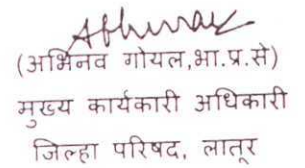 (अभिनव गोयल,भा.प्र.से)
मुख्य कार्यकारी अधिकारी
जिल्हा परिषद, लातूर